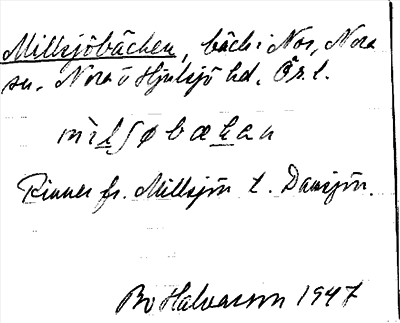 Millsjöbäcken, bäck i Nor, Nora
sn. Nora o Hjulsjö hd. Ör. l.
mìlʃøbækan
Rinner fr. Millsjön t. Damsjön.
Bo Halvarson 1947